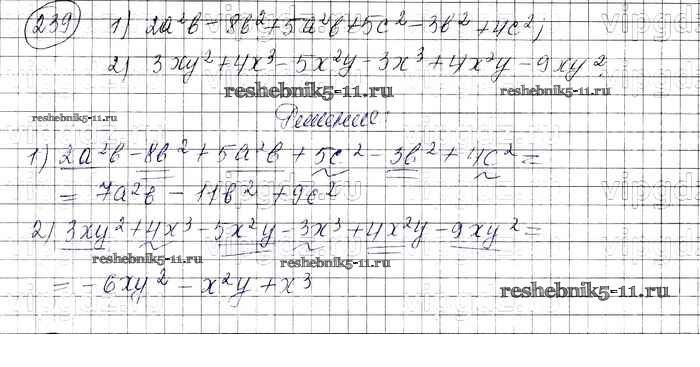 239 1) 2a²b - 8b² + 5a²b + 5c² - 3b² + 4c²;
2) 3xy² + 4x³ - 5x²y - 3x³ + 4x²y - 9xy².
reshebnik5-11.ru reshebnik5-11.ru
reshebnik5-11.ru
Решение:
1) 2a²b - 8b² + 5a²b + 5c² - 3b² + 4c² =
= 7a²b - 11b² + 9c²
2) 3xy² + 4x³ - 5x²y - 3x³ + 4x²y - 9xy² =
reshebnik5-11.ru reshebnik5-11.ru
= -6xy² - x²y + x³
reshebnik5-11.ru